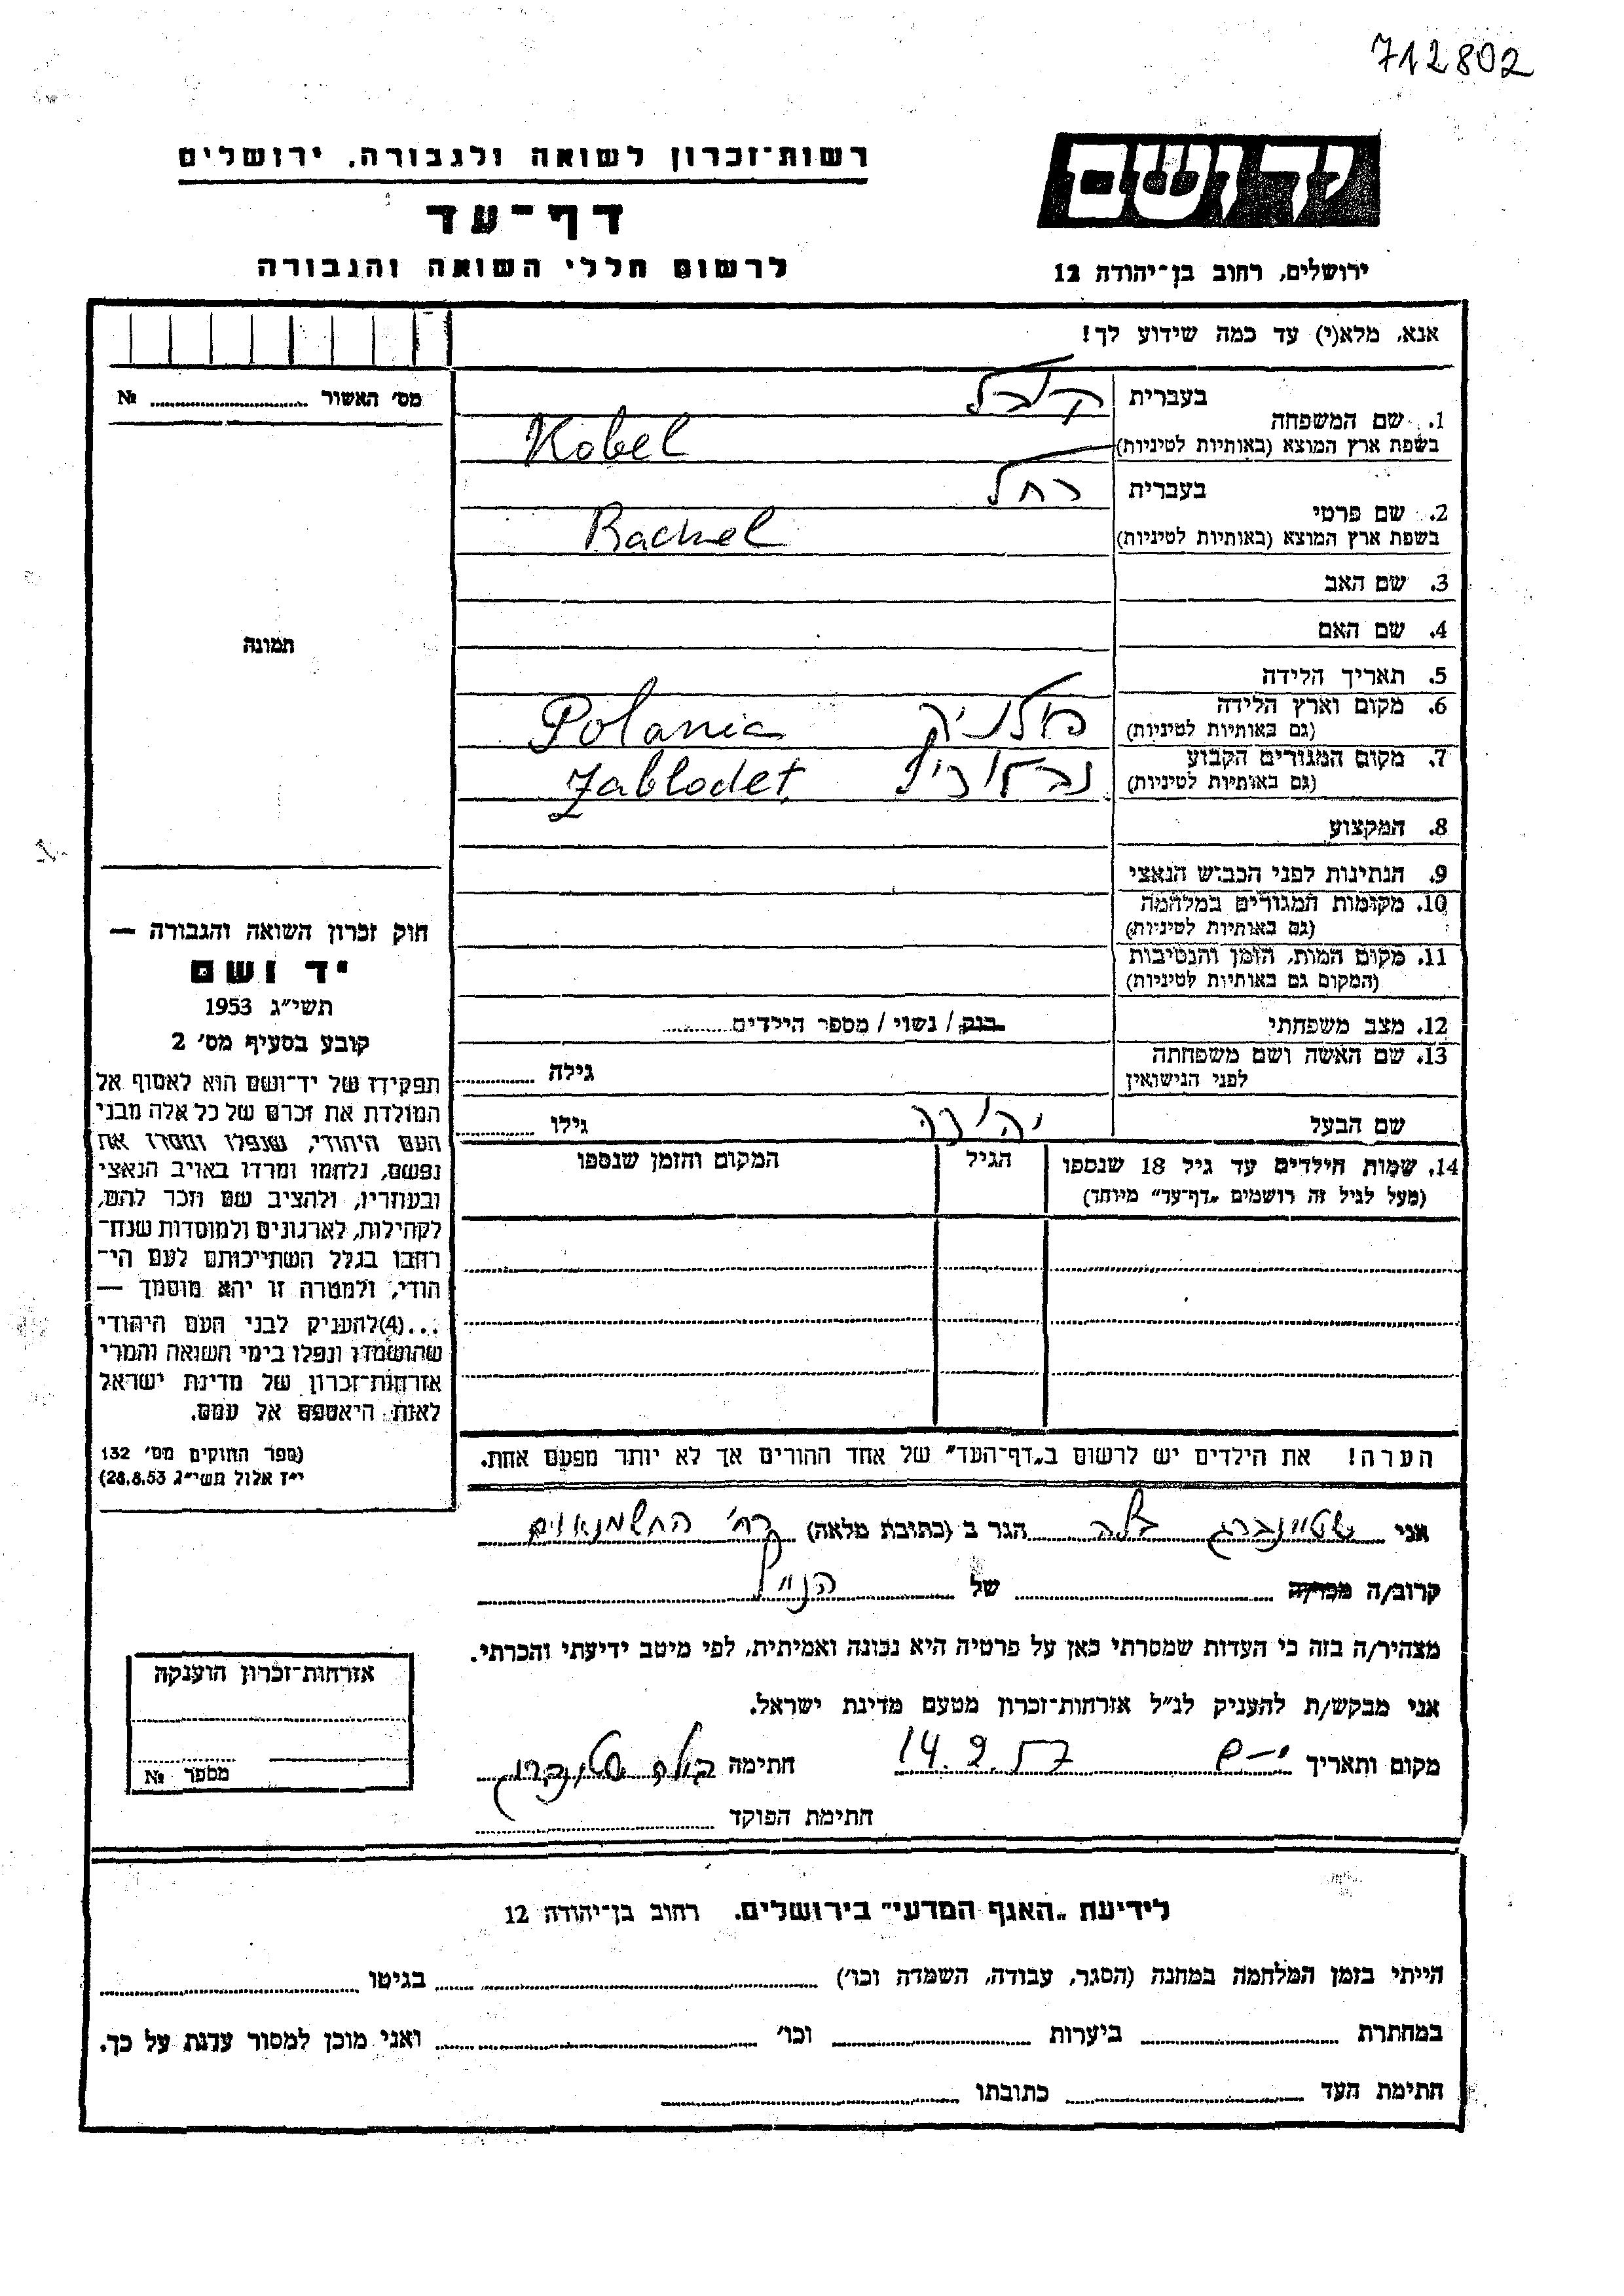 712802
יד ושם
רשות־זכרון לשואה ולגבורה, ירושלים
דף־עד
לרשום חללי השואה והגבורה
ירושלים, רחוב בן־יהודה 12
אנא, מלא(י) עד כמה שידוע לך!
מס' האשור ........ №
תמונה
בעברית קובל
1. שם המשפחה
בשפת ארץ המוצא (באותיות לטיניות) Kobel
בעברית רחל
2. שם פרטי
בשפת ארץ המוצא (באותיות לטיניות) Rachel
3. שם האב
4. שם האם
5. תאריך הלידה
6. מקום וארץ הלידה פולניה Polania
(גם באותיות לטיניות)
7. מקום המגורים הקבוע Jablodet
(גם באותיות לטיניות)
8. המקצוע
9. הנתינות לפני הכבוש הנאצי
10. מקומות המגורים במלחמה
(גם באותיות לטיניות)
11. מקום המות, הזמן והנסיבות
(המקום גם באותיות לטיניות)
12. מצב משפחתי רווק / נשוי / מספר הילדים........
13. שם האשה ושם משפחתה
לפני הנישואין גילה ........
שם הבעל יהודה גילו ........
14. שמות הילדים עד גיל 18 שנספו הגיל המקום והזמן שנספו
(מעל לגיל זה רושמים „דף־עד" מיוחד)
חוק זכרון השואה והגבורה —
יד ושם
תשי"ג 1953
קובע בסעיף מס' 2
תפקידו של יד־ושם הוא לאסוף אל
המולדת את זכרם של כל אלה מבני
העם היהודי, שנפלו ומסרו את
נפשם, נלחמו ומרדו באויב הנאצי
ובעוזריו, ולהציב שם וזכר להם,
לקהילות, לארגונים ולמוסדות שנח־
רבו בגלל השתייכותם לעם הי־
הודי, ולמטרה זו יהא מוסמך —
...(4)להעניק לבני העם היהודי
שהושמדו ונפלו בימי השואה והמרי
אזרחות־זכרון של מדינת ישראל
לאות היאספם אל עמם.
(ספר החוקים מס' 132
י"ז אלול תשי"ג 28.8.53)
הערה! את הילדים יש לרשום ב„דף־העד" של אחד ההורים אך לא יותר מפעם אחת.
אני שטיינברג בלה הגר ב (כתובת מלאה) רח' החשמונאים
קרוב/ה מכר/ה ........ של הנ"ל
מצהיר/ה בזה כי העדות שמסרתי כאן על פרטיה היא נכונה ואמיתית, לפי מיטב ידיעתי והכרתי.
אני מבקש/ת להעניק לנ"ל אזרחות־זכרון מטעם מדינת ישראל.
מקום ותאריך י-ם 14.2.57 חתימה בלה שטינברג
חתימת הפוקד ........
אזרחות־זכרון הוענקה
מספר №
לידיעת „האגף המדעי" בירושלים. רחוב בן־יהודה 12
הייתי בזמן המלחמה במחנה (הסגר, עבודה, השמדה וכו') ........ בגיטו ........
במחתרת ........ ביערות ........ וכו' ........ ואני מוכן למסור עדות על כך.
חתימת העד ........ כתובתו ........